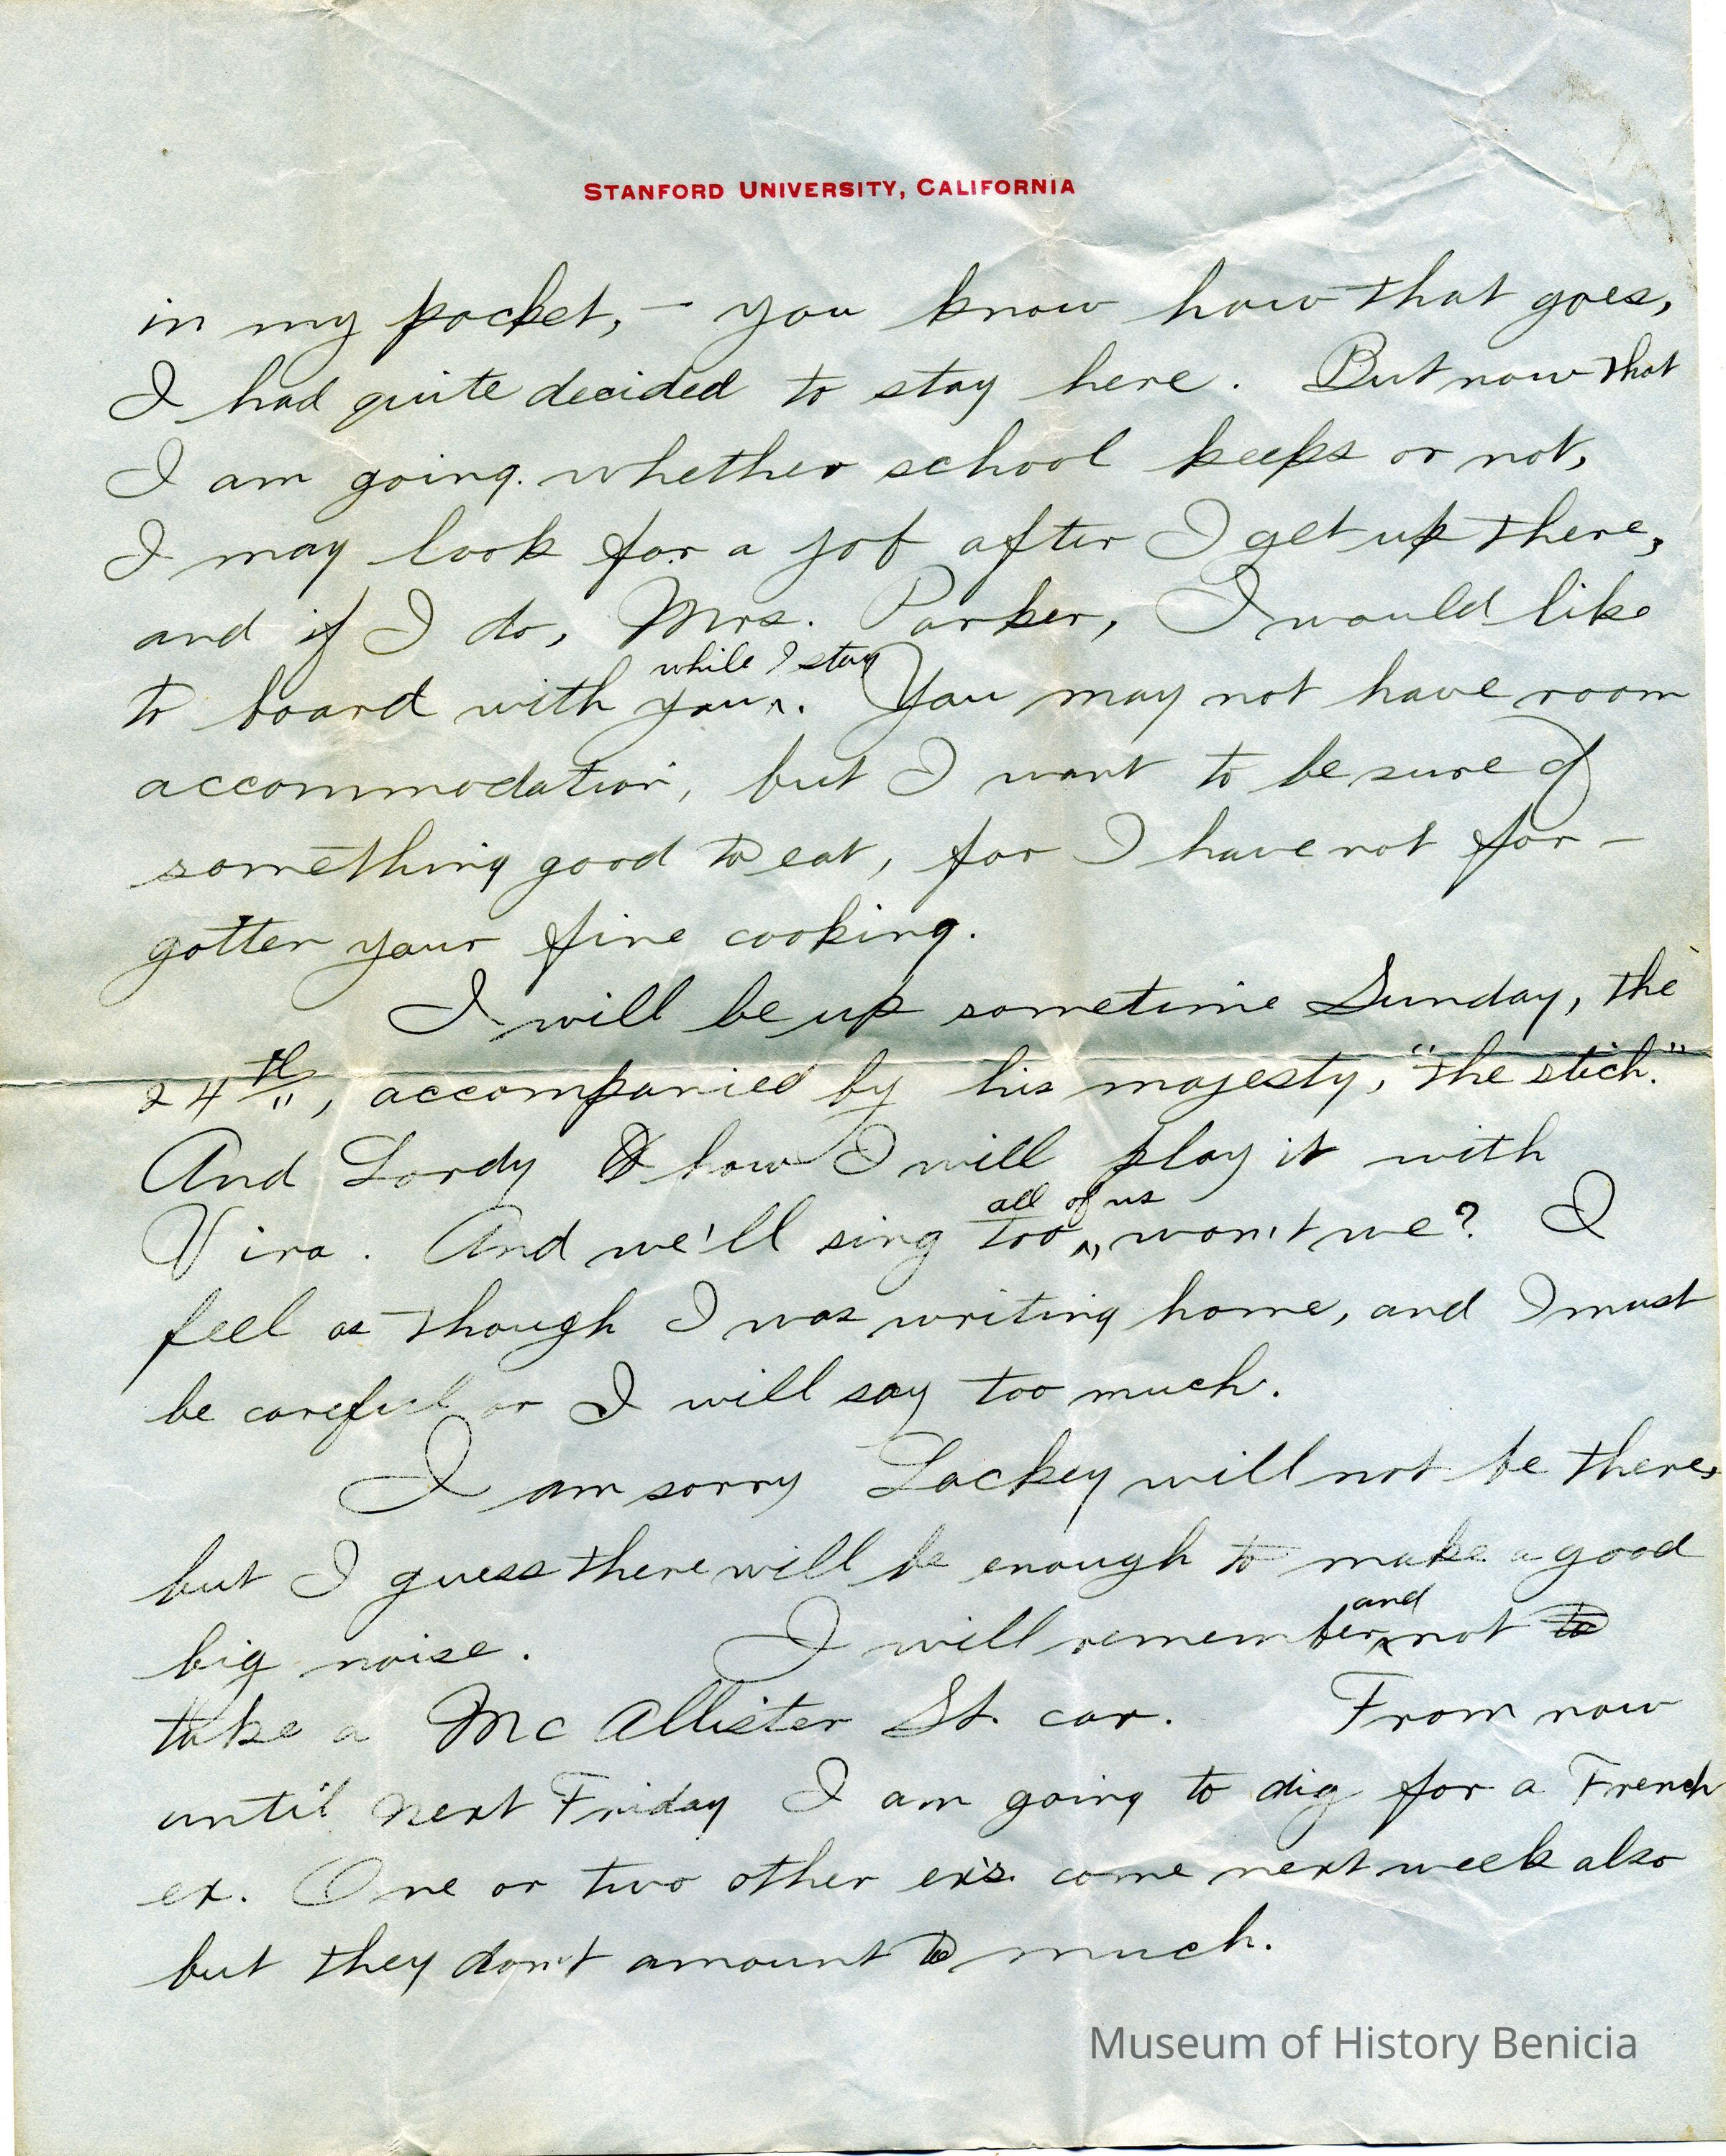 STANFORD UNIVERSITY, CALIFORNIA
in my pocket, - you know how that goes,
I had quite decided to stay here. But now that
I am going whether school keeps or not,
I may look for a job after I get up there,
and if I do, Mrs. Parker, I would like
while I stay
to board with you. You may not have room
accommodation, but I want to be sure of
something good to eat, for I have not for-
gotten your fine cooking.
I will be up sometime Sunday, the
24th, accompanied by his majesty, "the stick."
And Lordy how I will play it with
all of us
Vira. And we'll sing too, won't we? I
feel as though I was writing home, and I must
be careful or I will say too much.
I am sorry Lackey will not be there,
but I guess there will be enough to make a good
and
big noise. I will remember not to
take a McAllister St. car. From now
until next Friday I am going to dig for a French
ex. One or two other ex's. come next week also
but they don't amount to much.
Museum of History Benicia